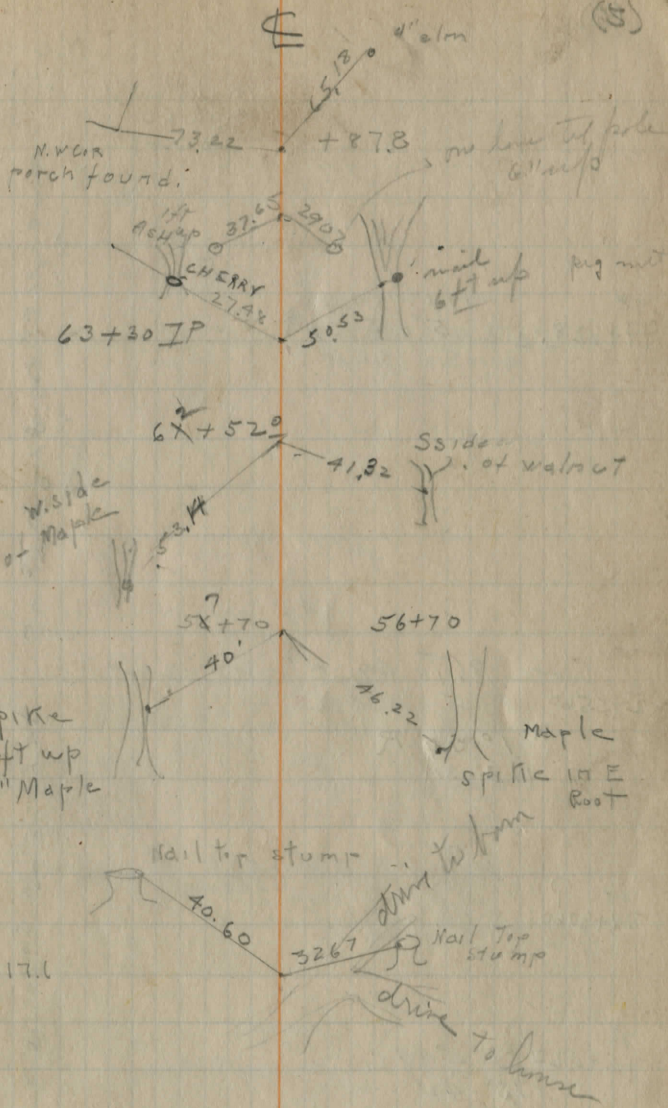 ℄
(5)
4" elm
65.18
73.22
+87.8
N.W COR
porch found.
on line tel pole
6" up
1ft
ASH up
37.65
2907
CHERRY
27.48
nail
6 ft up
pig nut
63+30 IP
50.53
62+520
41.32
S side
of walnut
W. side
of Maple
53.14
57+70
56+70
40'
46.22
Maple
Spike in E
Root
ft up
" Maple
Nail top stump
drive to barn
40.60
3267
Nail Top
stump
17.6
drive to house